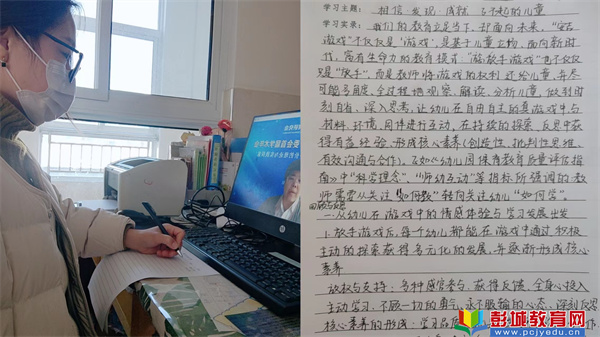 学习主题: 相信 发现 成就 了不起的儿童
学习实录: 我们的教育立足当下,却面向未来。"安吉
游戏"不仅仅是'游戏',是基于儿童立场,面向新时
代,富有生命力的教育模式。"放手游戏"也不仅仅
只是"放手",而是教师将游戏的权利还给儿童,并尽
可能多角度、全过程地观察、解读、分析儿童,做到时
刻自省、深入思考,让幼儿在自由自主的真游戏中与
材料、环境、同伴进行互动,在持续的探索、反思中获
得有益经验,形成核心素养(创造性、批判性思维、
有效沟通与合作)。正如《幼儿园保育教育质量评估指
南》中"科学理念"、"师幼互动"等指标所强调的教
师需要从关注"如何教"转向关注幼儿"如何学"。
一.从幼儿在游戏中的情感体验与学习发展出发
1.放手游戏后,每个幼儿都能在游戏中通过积极
主动的探索获得多元化的发展,并逐渐形成核心
素养
放权与支持:多种感官参与、获得反馈、全身心投入
主动学习、不顾一切的勇气、永不服输的心态、深刻反思
核心素养的形成:学习品质
彭城教育网
www.pcjyedu.cn